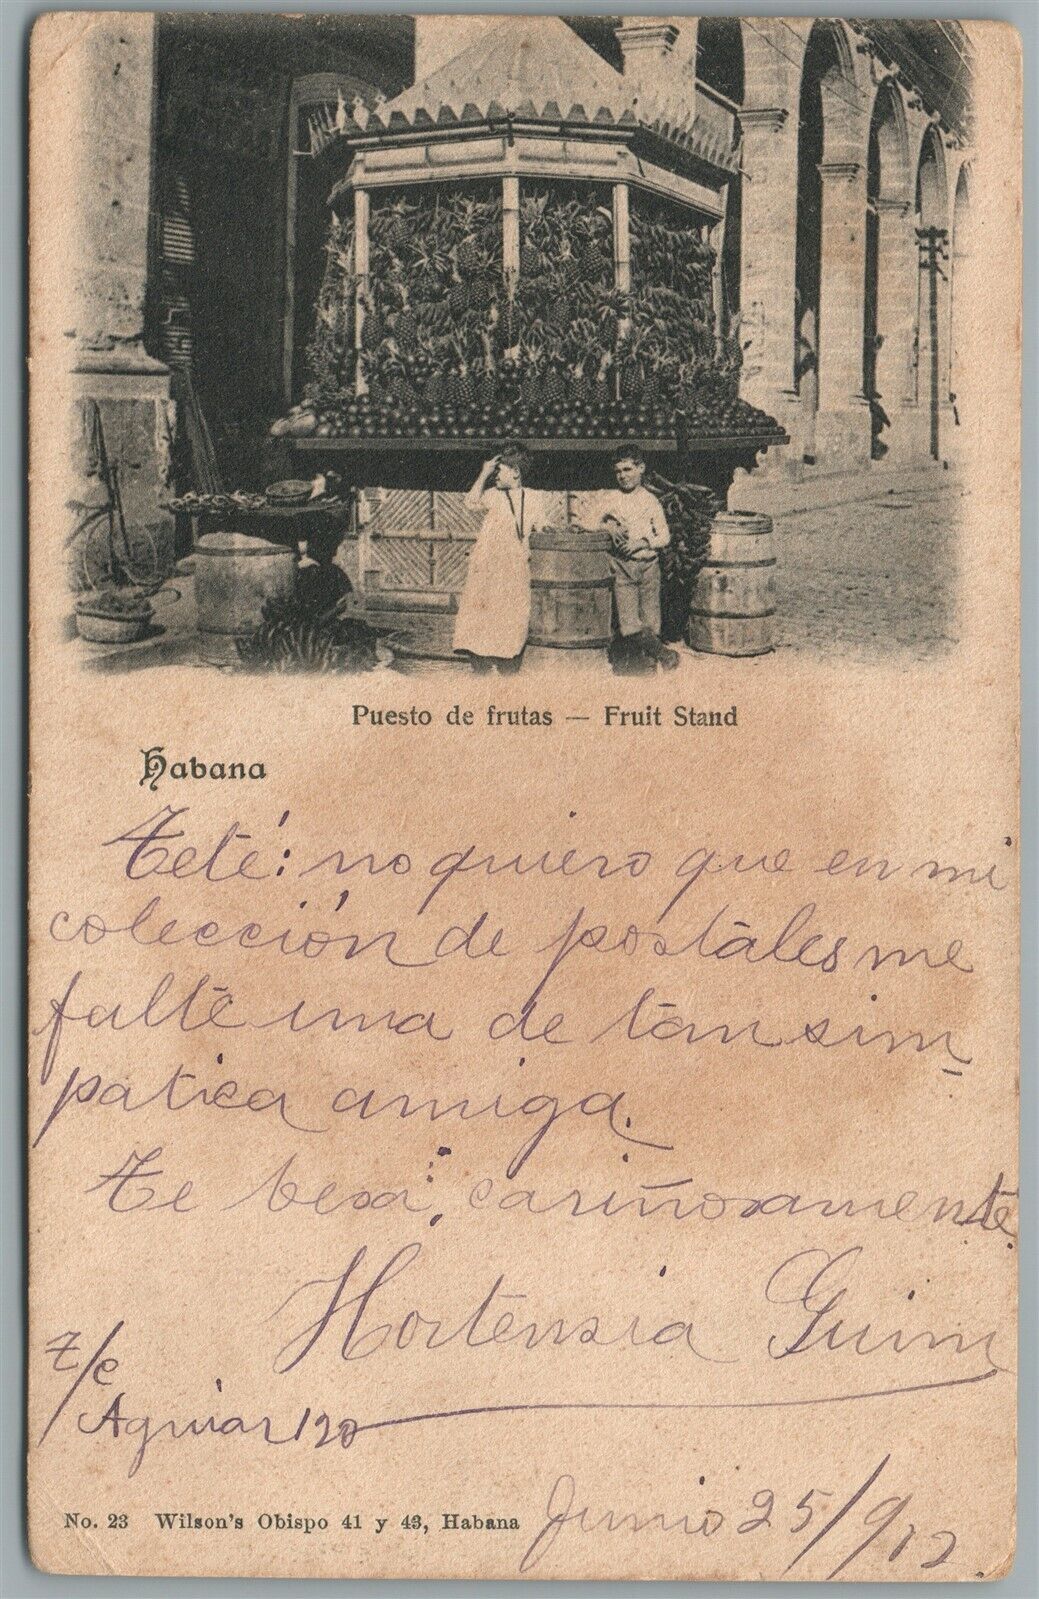 Puesto de frutas — Fruit Stand
Habana
Teté: no quiero que en mi
colección de postáles me
falte una de tan sim
patica amiga.
Te besa, cariñosamente
Hortensia Guim
Aguiar 120
No. 23 Wilson's Obispo 41 y 43, Habana
Junio 25/912